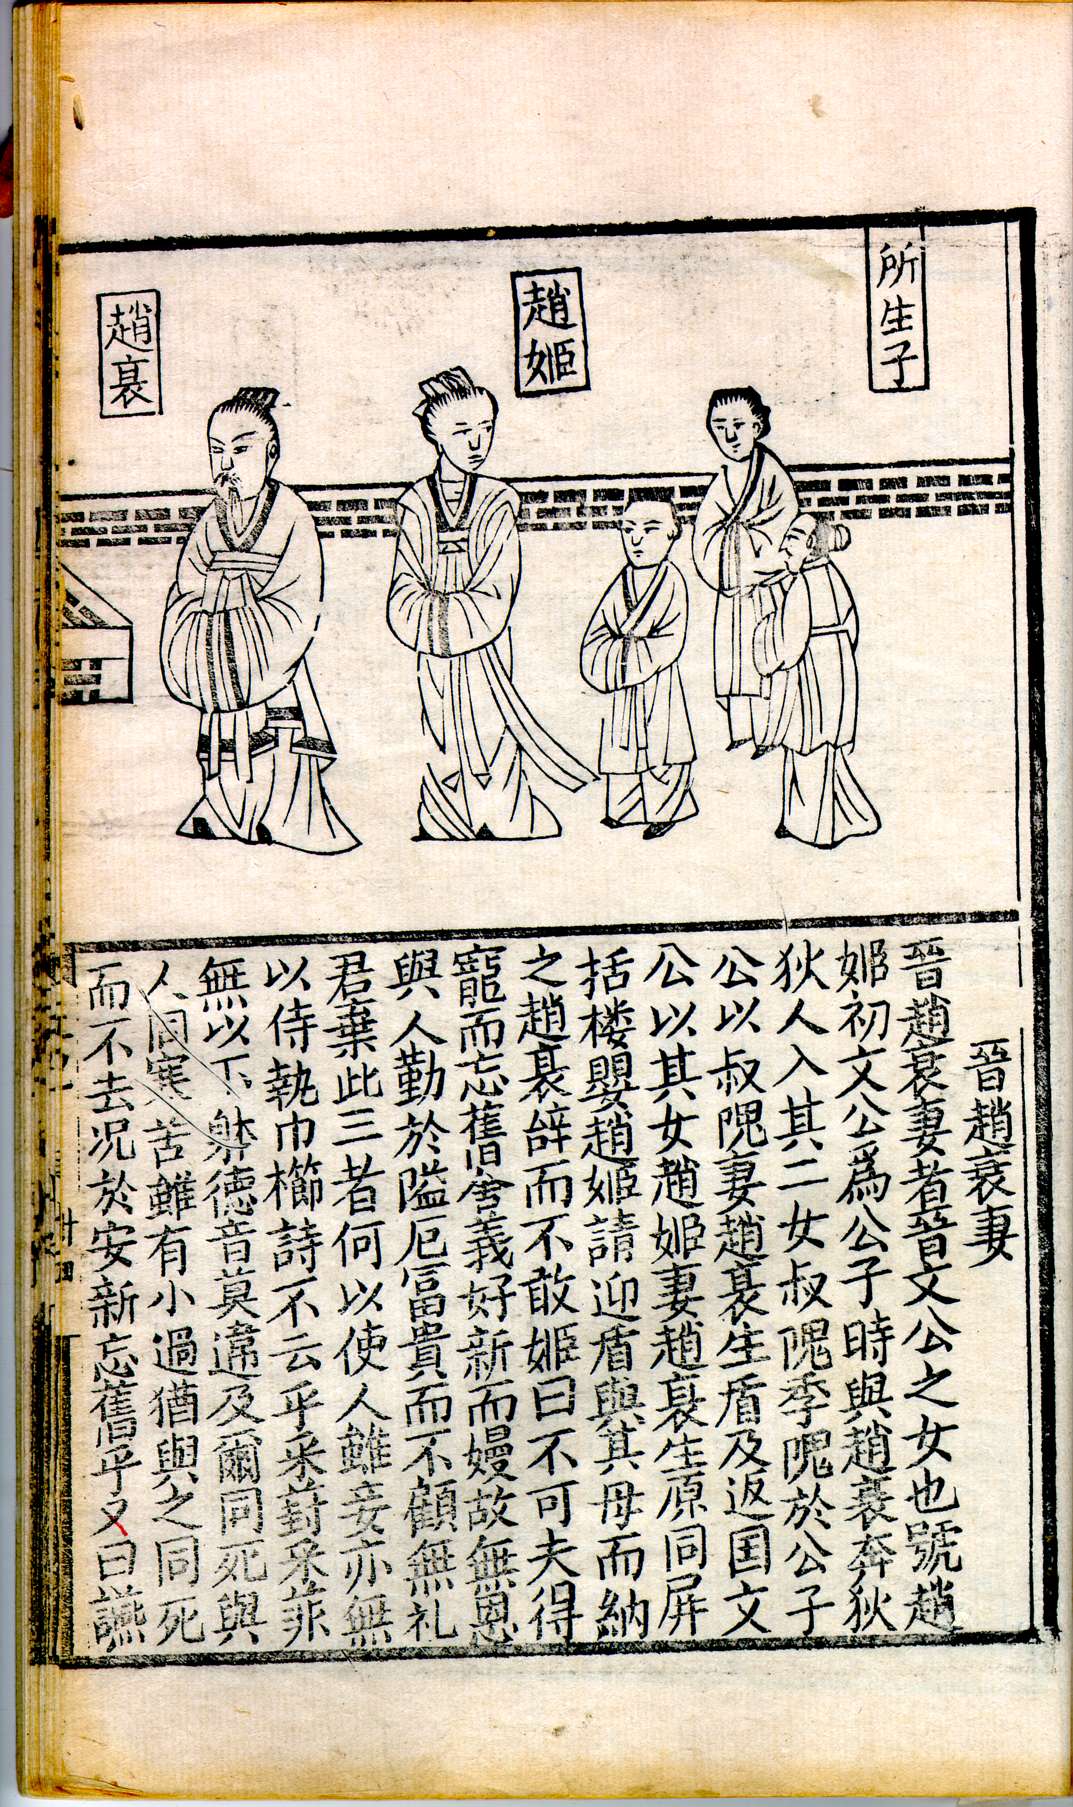 所生子
趙姬
趙衰
晉趙衰妻
晉趙衰妻者晉文公之女也號趙
姬初文公爲公子時與趙衰奔狄
狄人入其二女叔隗季隗於公子
公以叔隗妻趙衰生盾及返国文
公以其女趙姬妻趙衰生原同屏
括楼嬰趙姬請迎盾與其母而納
之趙衰辝而不敢姬曰不可夫得
寵而忘舊舍義好新而嫚故無恩
與人勤於隘厄冨貴而不顧無礼
君棄此三者何以使人雖妾亦無
以侍執巾櫛詩不云乎采葑采菲
無以下躰德音莫違及爾同死與
人同寒苦雖有小過猶與之同死
而不去况於安新忘舊乎又曰讌